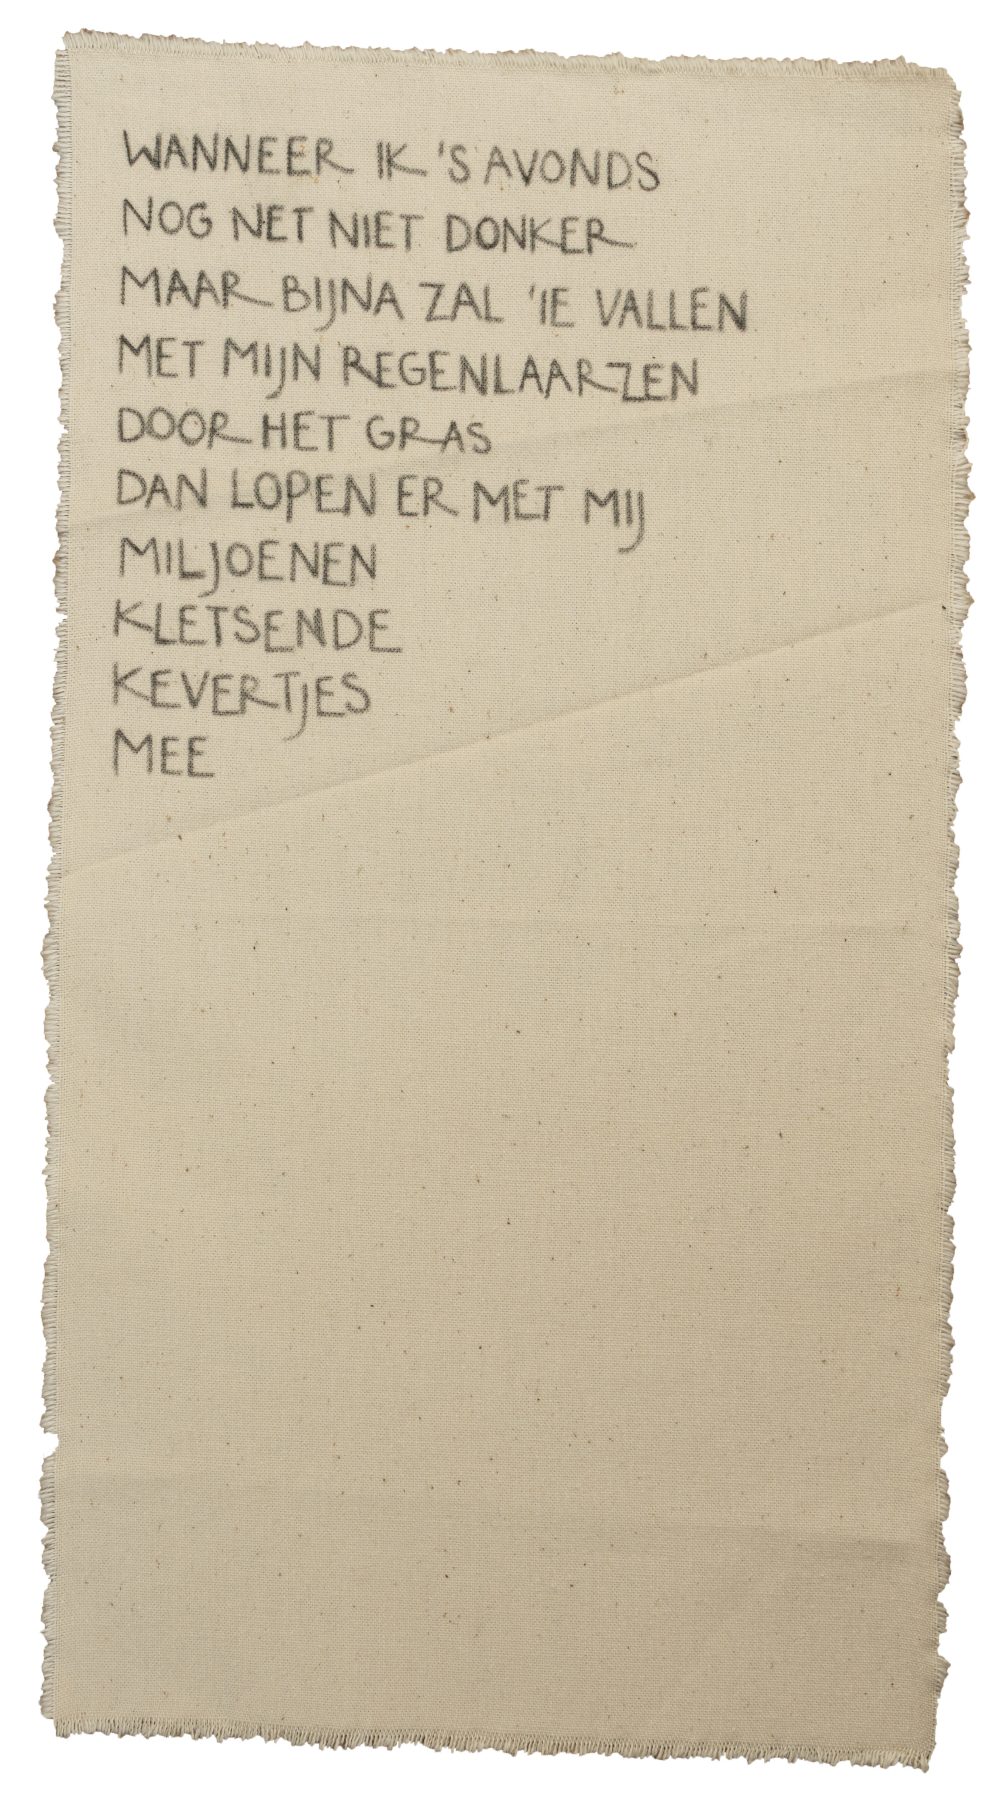 WANNEER IK 'S AVONDS
NOG NET NIET DONKER
MAAR BIJNA ZAL 'IE VALLEN
MET MIJN REGENLAARZEN
DOOR HET GRAS
DAN LOPEN ER MET MIJ
MILJOENEN
KLETSENDE
KEVERTJES
MEE